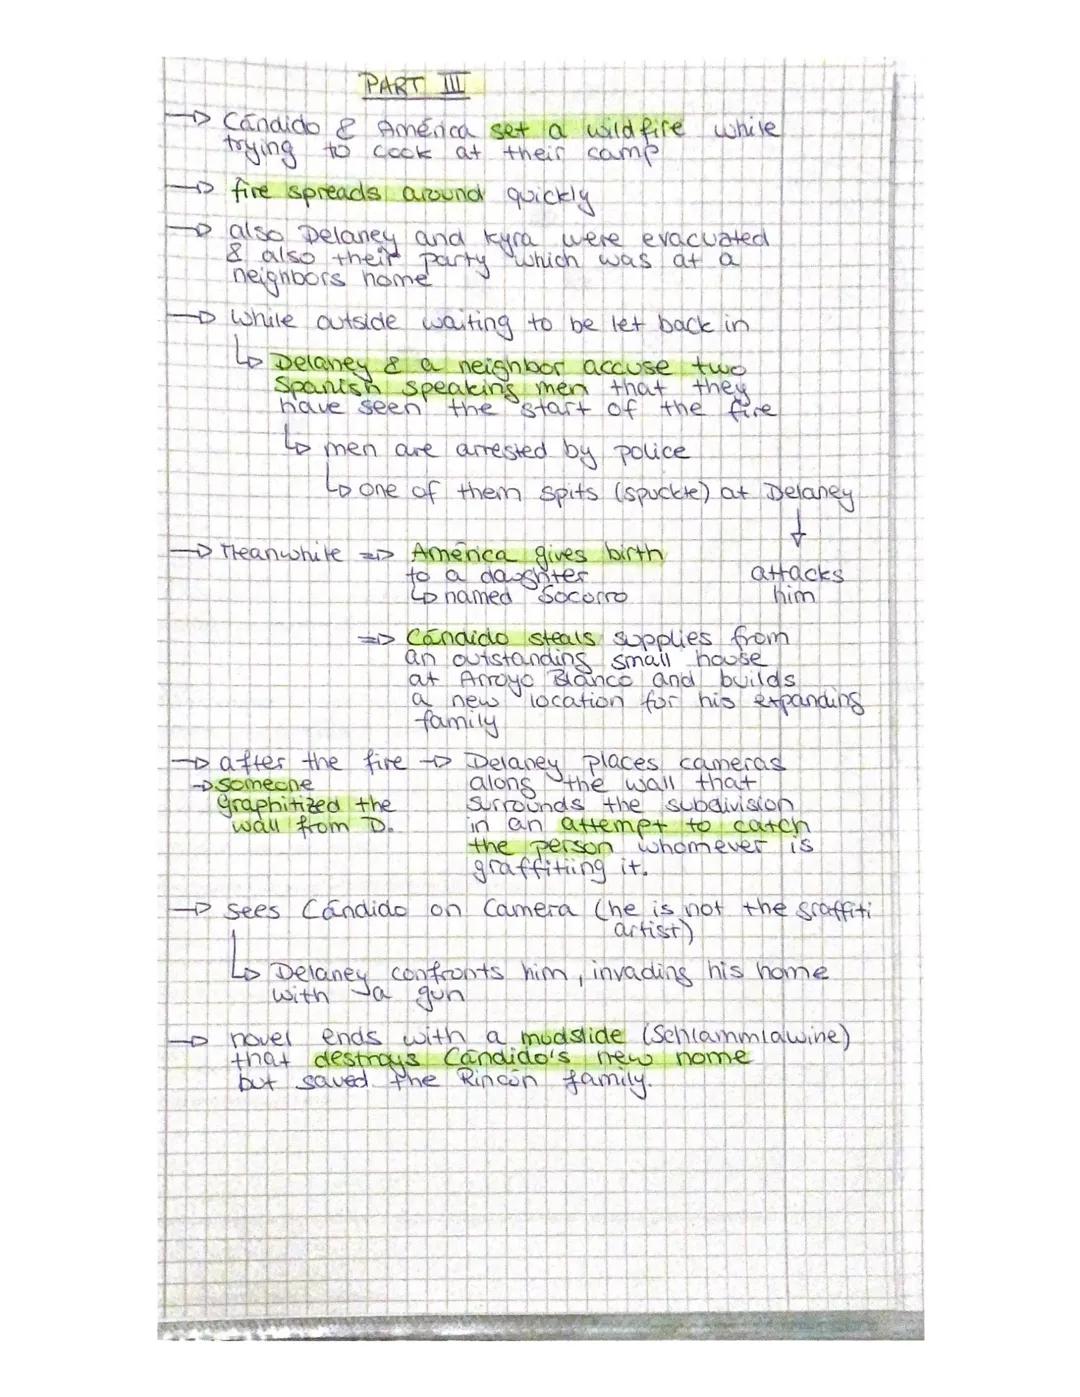 PART III
→ Cándido & América set a wildfire while
trying to cook at their camp
→ fire spreads around quickly
→ also Delaney and Kyra were evacuated
& also their party which was at a
neighbors home
→ while outside waiting to be let back in
↳ Delaney & a neighbor accuse two
Spanish speaking men that they
have seen the start of the fire
↳ men are arrested by police
↳ one of them spits (spuckte) at Delaney
↓
attacks
him
→ Meanwhile => América gives birth
to a daughter
↳ named Socorro
=> Cándido steals supplies from
an outstanding small house
at Arroyo Blanco and builds
a new location for his expanding
family
→ after the fire → Delaney places cameras
→ someone along the wall that
graphitized the surrounds the subdivision
wall from D. in an attempt to catch
the person whomever is
graffitiing it.
→ sees Cándido on Camera (he is not the graffiti
artist)
↳ Delaney confronts him, invading his home
with a gun
→ novel ends with a mudslide (Schlammlawine)
that destroys Cándido's new home
but saved the Rincón family.